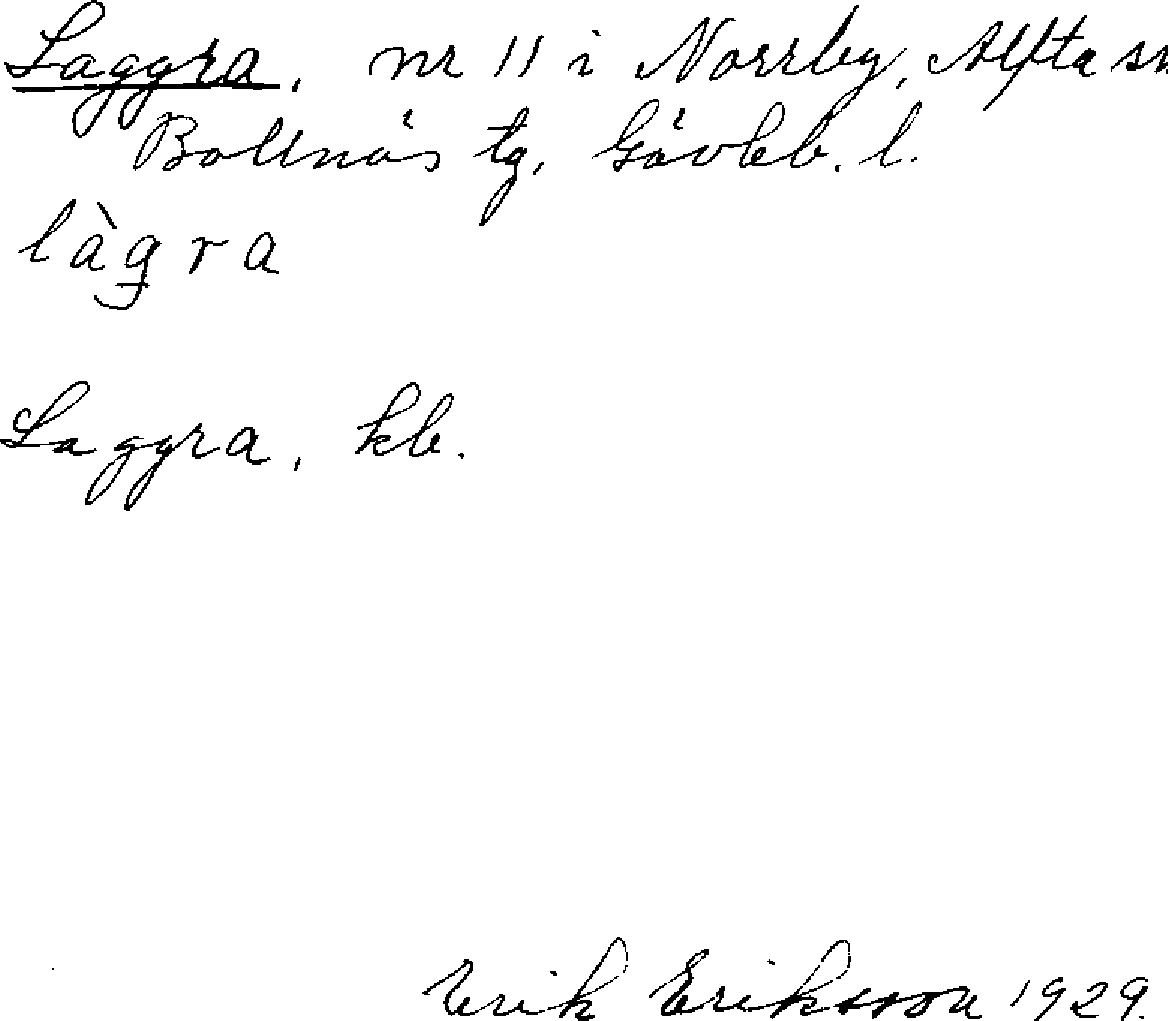 Laggra, nr 11 i Norrby, Alfta sn
Bollnäs tg, Gävleb. l.
làgra
Laggra, kb.
Erik Eriksson 1929.